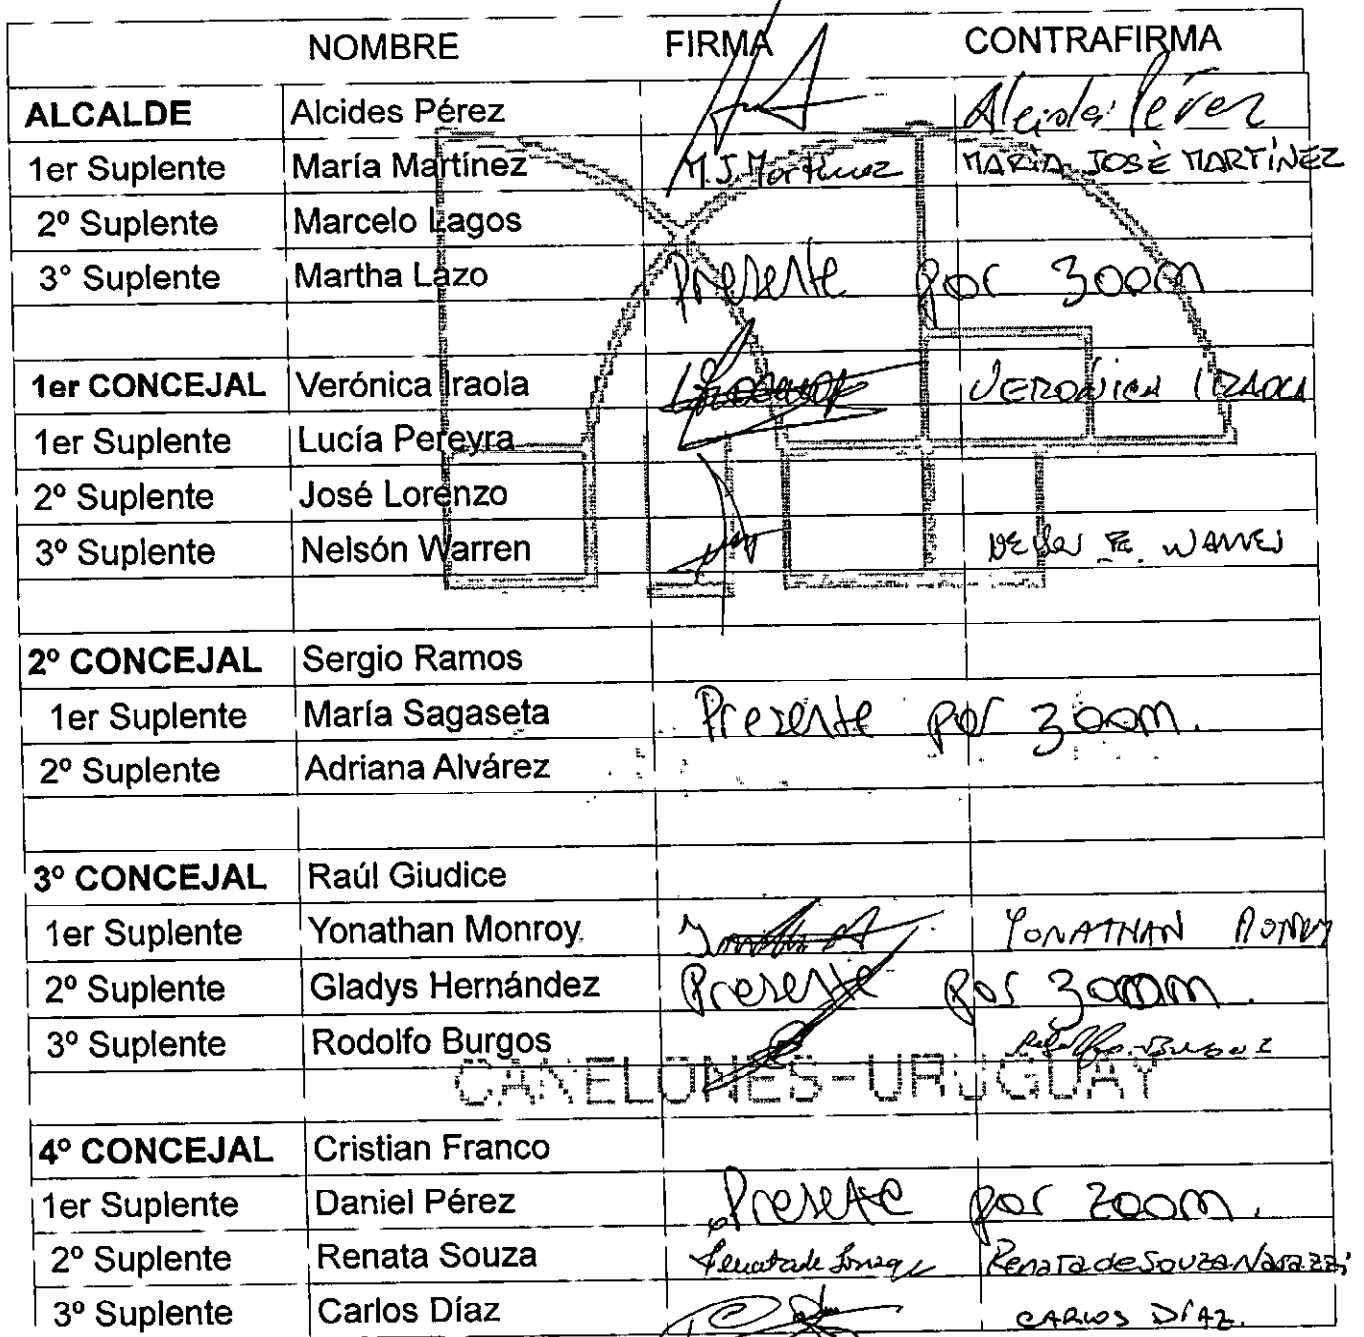 NOMBRE FIRMA CONTRAFIRMA
ALCALDE Alcides Pérez Alcides Pérez
1er Suplente María Martínez M.J. Martínez MARÍA JOSÈ MARTÍNEZ
2º Suplente Marcelo Lagos
3° Suplente Martha Lazo Presente por zoom
1er CONCEJAL Verónica Iraola VERONICA IRAOLA
1er Suplente Lucía Pereyra
2º Suplente José Lorenzo
3º Suplente Nelsón Warren
2º CONCEJAL Sergio Ramos
1er Suplente María Sagaseta Presente por zoom.
2º Suplente Adriana Alvárez
3º CONCEJAL Raúl Giudice
1er Suplente Yonathan Monroy YONATHAN
2º Suplente Gladys Hernández Presente por zoom.
3º Suplente Rodolfo Burgos
CANELONES-URUGUAY
4º CONCEJAL Cristian Franco
1er Suplente Daniel Pérez Presete por zoom.
2º Suplente Renata Souza Renata de Souza
3º Suplente Carlos Díaz CARLOS DÍAZ.